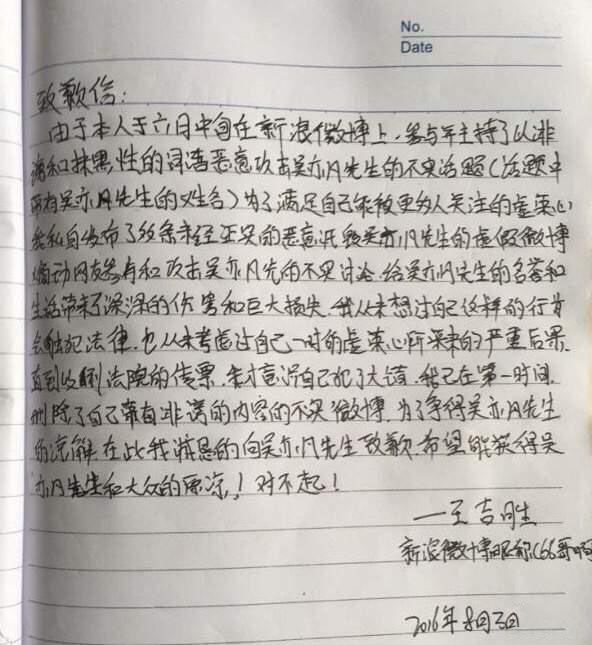 No.
Date
致歉信:
由于本人于六月中旬在新浪微博上,参与并主持了以诽
谤和抹黑性的词语恶意攻击吴亦凡先生的不实话题(话题中
带有吴亦凡先生的姓名)为了满足自己能被更多人关注的虚荣心
我私自发布了多条未经证实的恶意诋毁吴亦凡先生的虚假微博
煽动网友参与和攻击吴亦凡先的不实讨论.给吴亦凡先生的名誉和
生活带来了深深的伤害和巨大损失.我从未想过自己这样的行为
会触犯法律.也从未考虑过自己一时的虚荣心所带来的严重后果.
直到收到法院的传票.我才意识自己犯了大错.我已在第一时间.
删除了自己带有诽谤的内容的不实微博.为了争得吴亦凡先生
的谅解.在此我诚恳的向吴亦凡先生致歉.希望能获得吴
亦凡先生和大众的原谅!对不起!
——王吉胜
新浪微博昵称(66哥啊
2016年8月3日